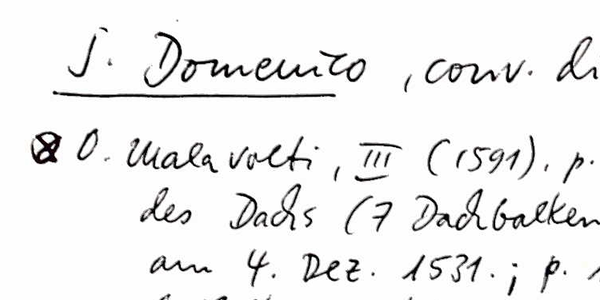 S. Domenico, conv. di
⊗ O. Malavolti, III (1591), p.
des Dachs (7 Dachbalken
am 4. Dez. 1531.; p.